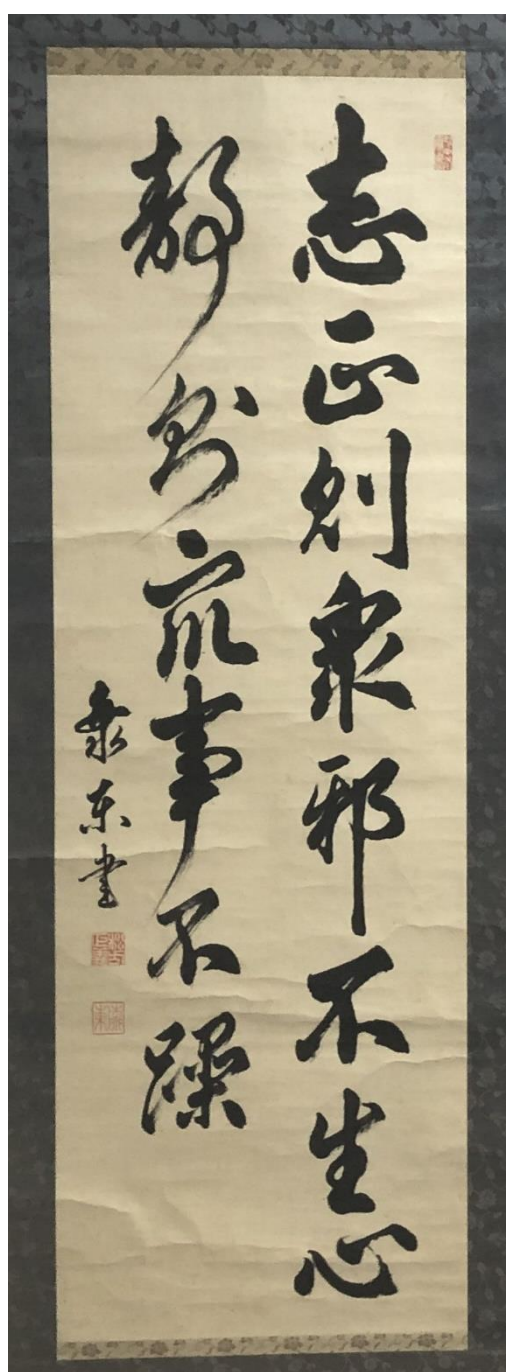 志正則衆邪不生心
靜則衆事不躁
東書